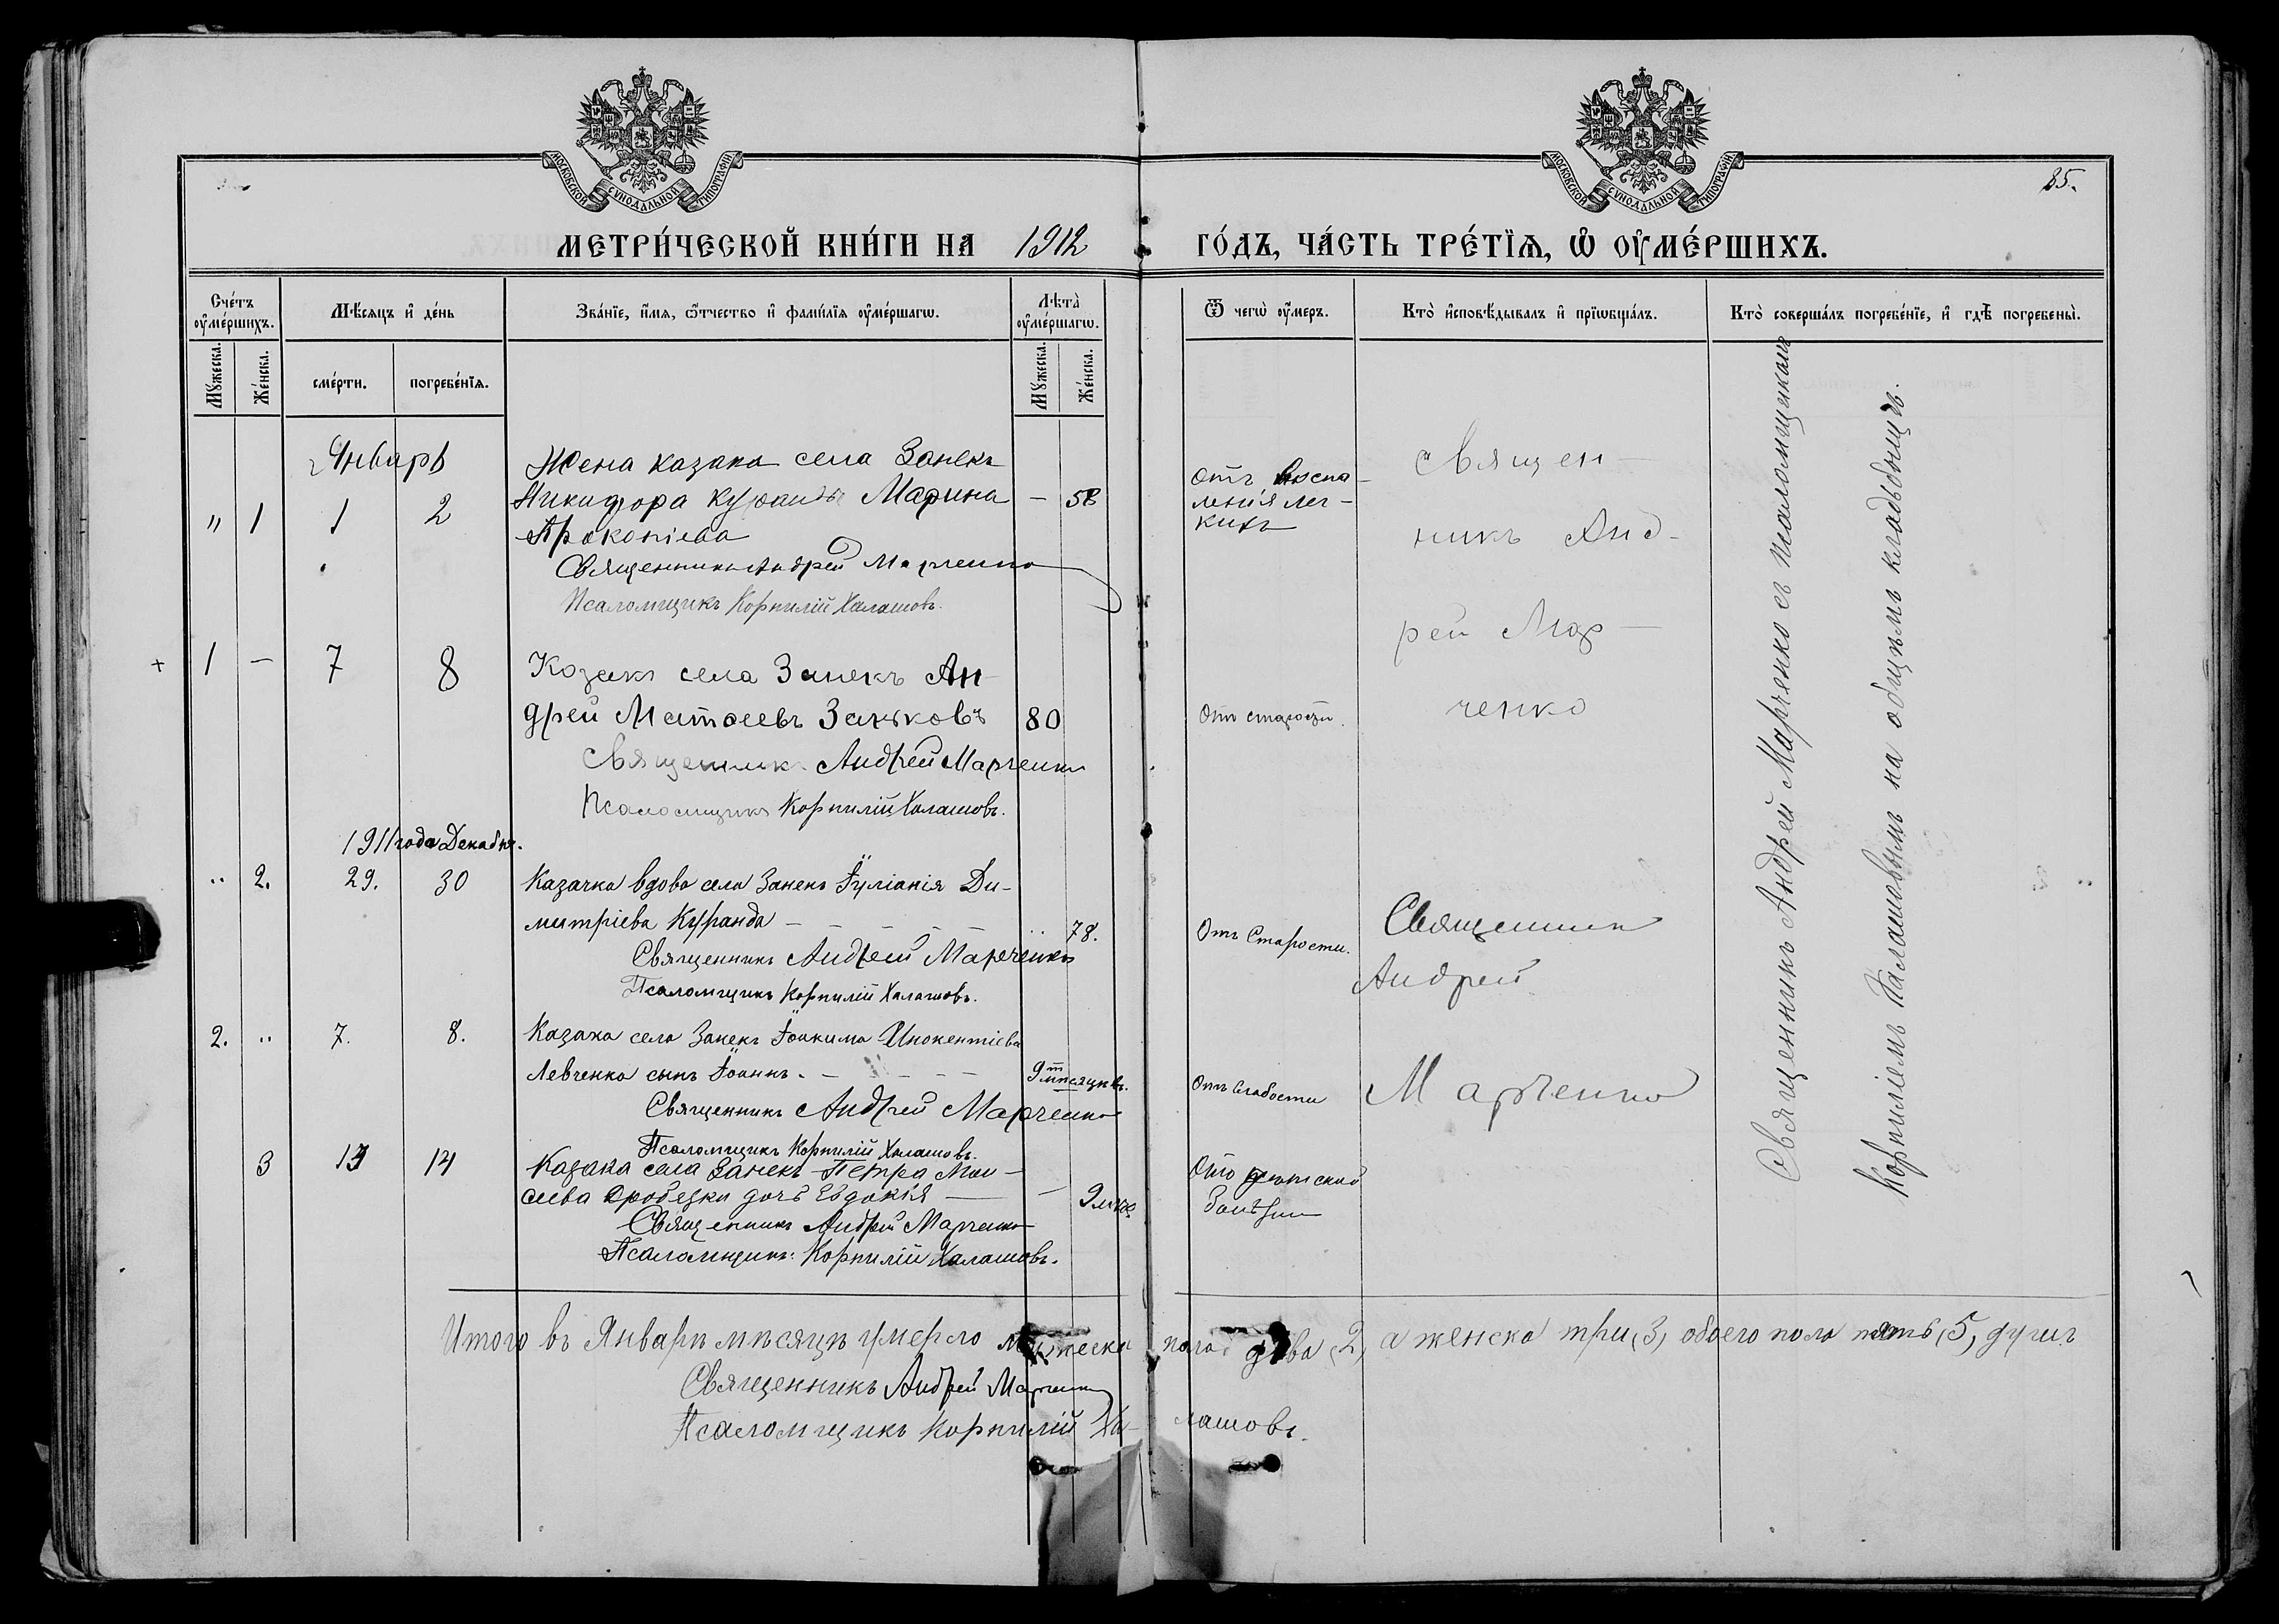 МОСКОВСКОЙ СѴНОДАЛЬНОЙ ТИПОГРАФІИ
МОСКОВСКОЙ СѴНОДАЛЬНОЙ ТИПОГРАФІИ
85.
МЕТРИ́ЧЕСКОЙ КНИ́ГИ НА 1912 ГО́ДЪ, ЧА́СТЬ ТРЕ́ТІѦ, Ѡ҆ ОУ҆МЕ́РШИХЪ.
Сче́тъ оу҆ме́ршихъ.
Мѣ́сяцъ и҆ де́нь
Зва́нїе, и҆́мя, ѻ҆́тчество и҆ фами́лїя оу҆ме́ршагѡ.
Лѣта̀ оу҆ме́ршагѡ.
Ѿ чегѡ̀ оу҆́меръ.
Кто̀ и҆сповѣ́дывалъ и҆ прїѡбща́лъ.
Кто̀ соверша́лъ погребе́нїе, и҆ гдѣ̀ погребены̀.
Мꙋ́жеска.
Же́нска.
сме́рти.
погребе́нїя.
Мꙋ́жеска.
Же́нска.
Январь
Жена казака села Занекъ
" 1 1 2 Никифора Куранды Марина — 58
Прокопіева
Священникъ Андрей Марченко
Псаломщикъ Корнилій Халашовъ.
Отъ воспа-
ленія лег-
кихъ
Священ-
никъ Анд-
рей Мар-
ченко
+ 1 — 7 8 Козакъ села Занекъ Ан-
дрей Матѳеевъ 80
Отъ старости.
Священникъ Андрей Марченко
Псаломщикъ Корнилій Халашовъ.
1911 года Декабря.
" 2. 29. 30 Казачка вдова села Занекъ Іуліанія Ди-
митріева Куранда — 78.
Отъ Старости.
Священникъ Андрей Марченко
Псаломщикъ Корнилій Халашовъ.
Священникъ
Андрей
Марченко
2. " 7. 8. Казака села Занекъ Іоакима Инокентіева
Левченко сынъ Іоаннъ. — 9 мѣсяцевъ.
Отъ слабости
Священникъ Андрей Марченко
Псаломщикъ Корнилій Халашовъ.
3 13 14 Казака села Занекъ Петра Мои-
сеева дочь Евдокія — 9 мѣс
Отъ дѣтской
болѣзни
Священникъ Андрей Марченко
Псаломщикъ: Корнилій Халашовъ.
Священникъ Андрей Марченко съ псаломщикомъ
Корниліемъ Халашовымъ на общемъ кладбищѣ.
Итого въ Январѣ мѣсяцѣ умерло мужеска пола два (2) а женска три (3) обоего пола пять (5) душъ
Священникъ Андрей Марченко
Псаломщикъ Корнилій Халашовъ.